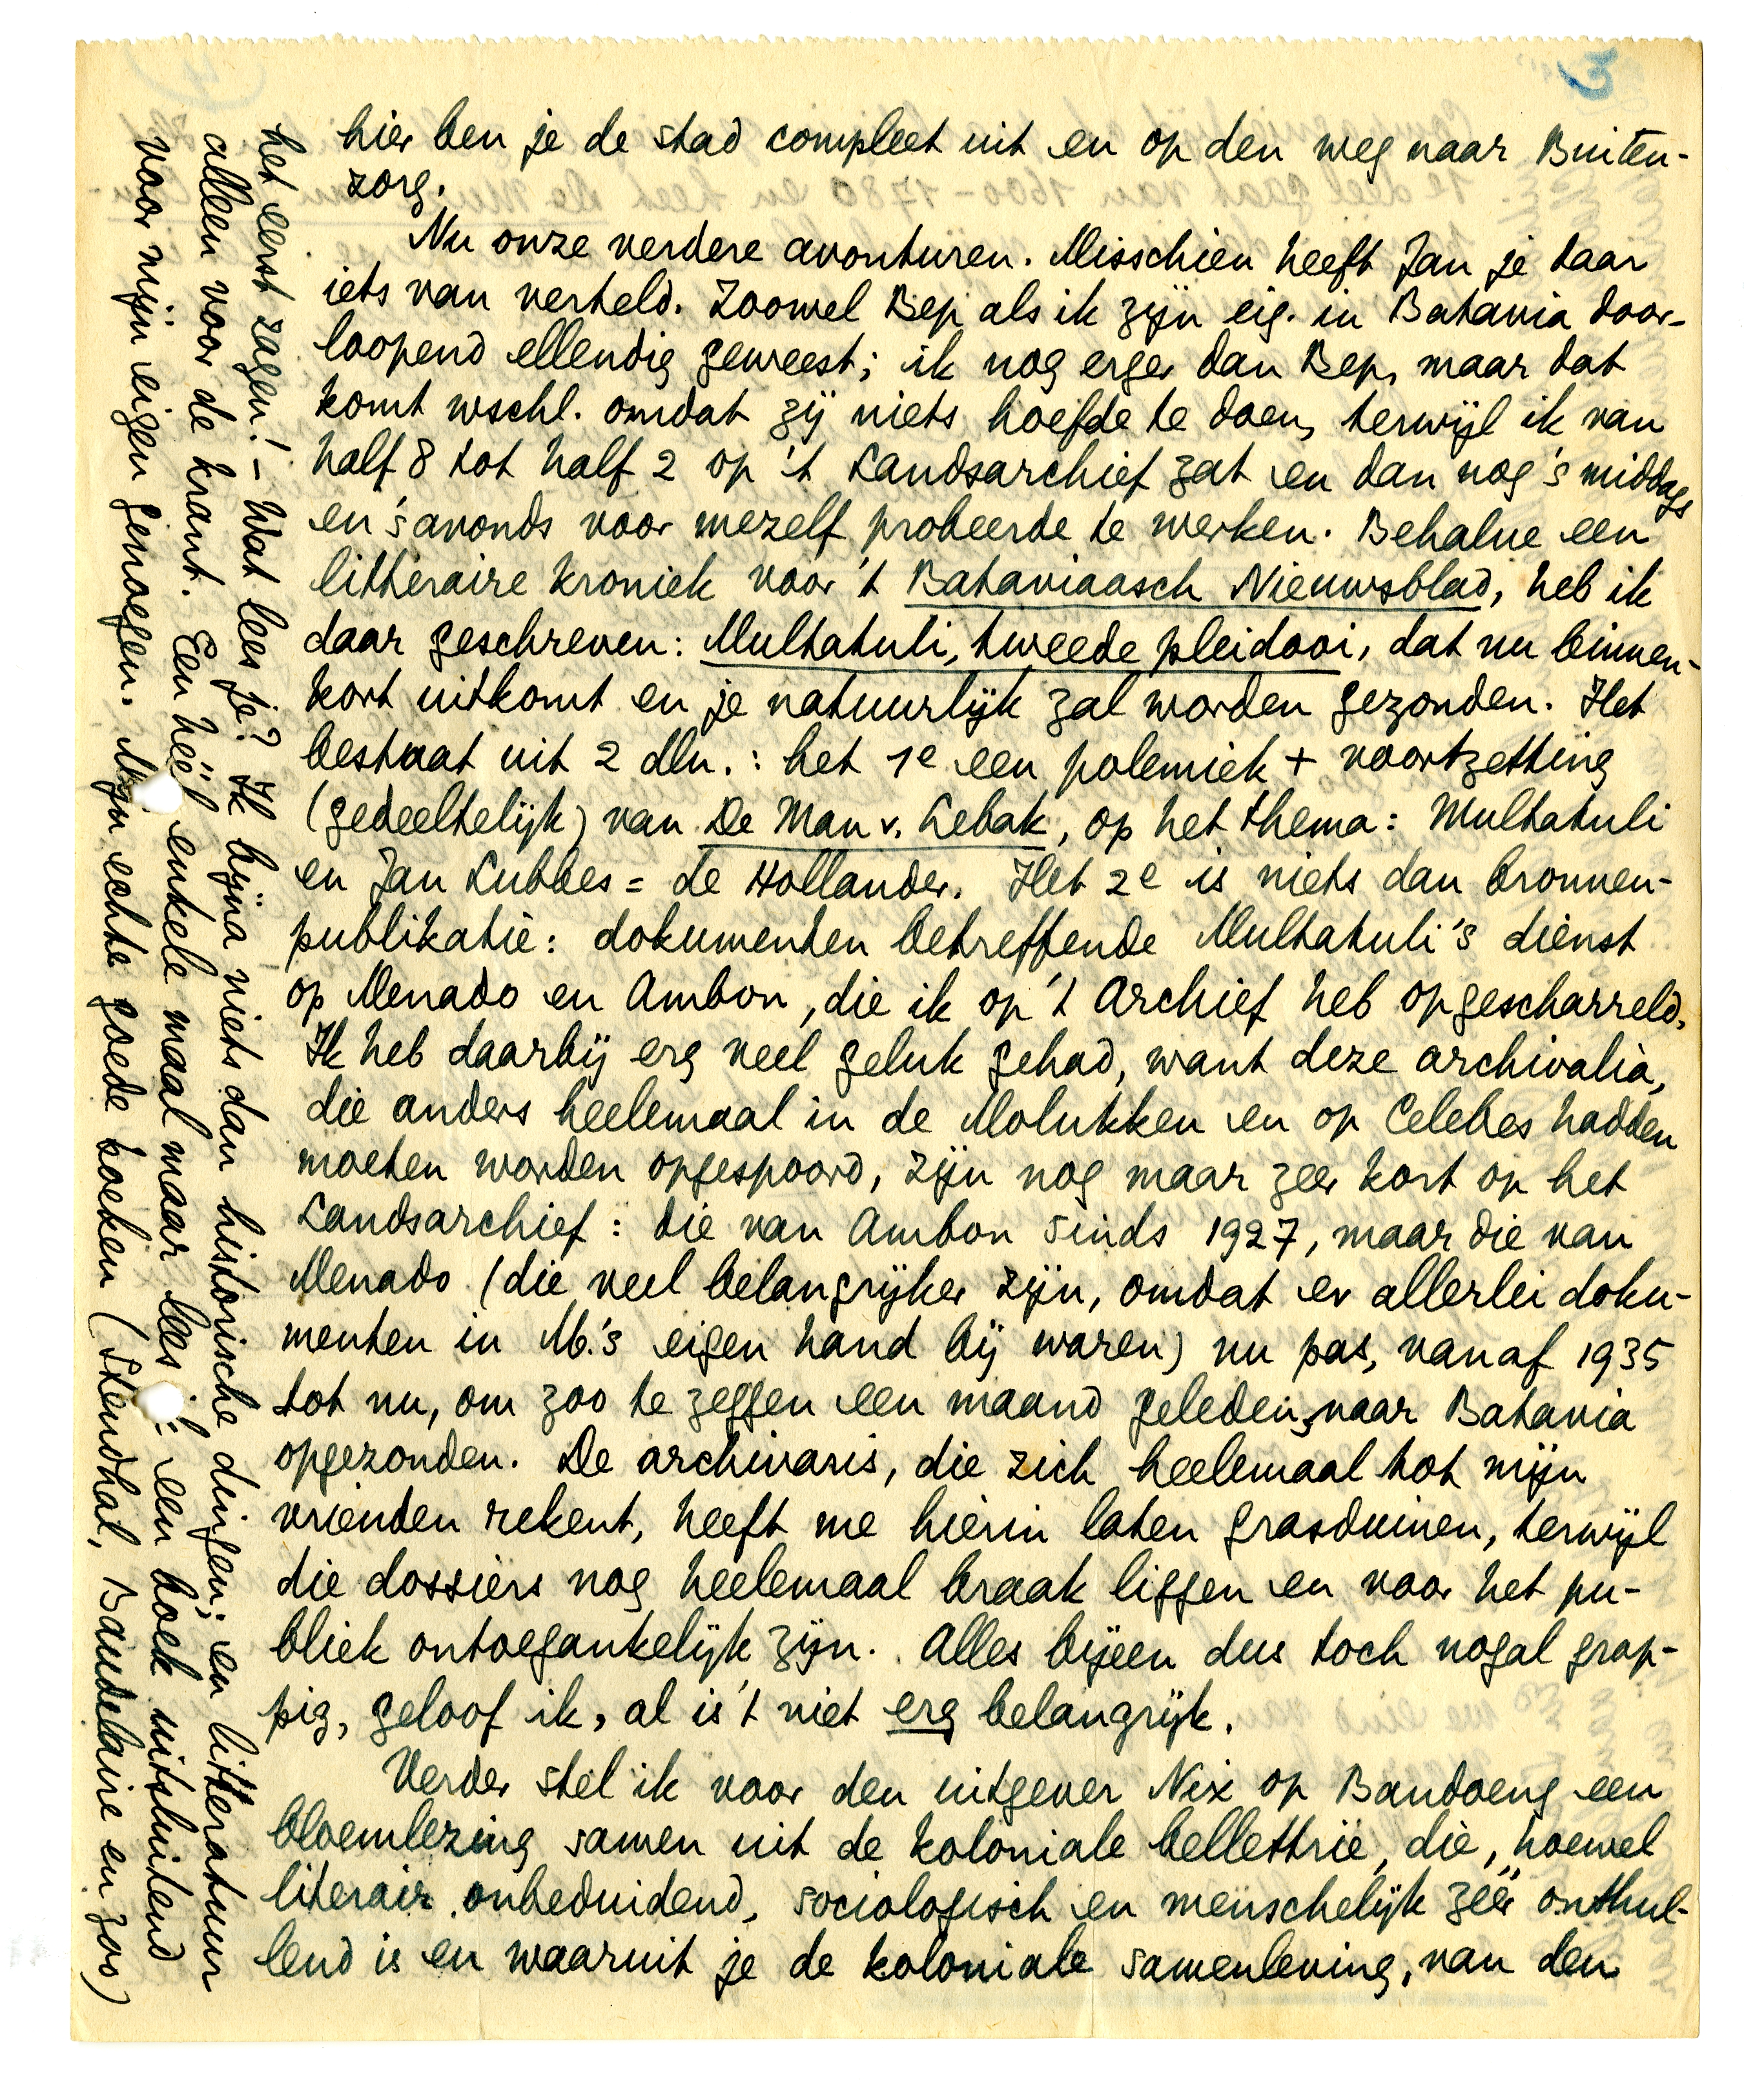 3
hier ben je de stad compleet uit en op den weg naar Buiten-
zorg.
Nu onze verdere avonturen. Misschien heeft Jan je daar
iets van verteld. Zoowel Bep als ik zijn eig. in Batavia door-
loopend ellendig geweest; ik nog erger dan Bep, maar dat
komt wschl. omdat zij niets hoefde te doen, terwijl ik van
half 8 tot half 2 op 't Landsarchief zat en dan nog 's middags
en 's avonds voor mezelf probeerde te werken. Behalve een
litteraire kroniek voor 't Bataviaasch Nieuwsblad, heb ik
daar geschreven: Multatuli, tweede pleidooi, dat nu binnen-
kort uitkomt en je natuurlijk zal worden gezonden. Het
bestaat uit 2 dln.: het 1e een polemiek + voortzetting
(gedeeltelijk) van De Man v. Lebak, op het thema: Multatuli
en Jan Lubbes = de Hollander. Het 2e is niets dan bronnen-
publikatie: dokumenten betreffende Multatuli's dienst
op Menado en Ambon, die ik op 't Archief heb opgescharreld.
Ik heb daarbij erg veel geluk gehad, want deze archivalia,
die anders heelemaal in de Molukken en op Celebes hadden
moeten worden opgespoord, zijn nog maar zeer kort op het
Landsarchief: die van Ambon sinds 1927, maar die van
Menado (die veel belangrijker zijn, omdat er allerlei doku-
menten in M.'s eigen hand bij waren) nu pas, vanaf 1935
tot nu, om zoo te zeggen een maand geleden, naar Batavia
opgezonden. De archivaris, die zich heelemaal tot mijn
vrienden rekent, heeft me hierin laten grasduinen, terwijl
die dossiers nog heelemaal braak liggen en voor het pu-
bliek ontoegankelijk zijn. Alles bijeen dus toch nogal grap-
pig, geloof ik, al is 't niet erg belangrijk.
Verder stel ik voor den uitgever Nix op Bandoeng een
bloemlezing samen uit de koloniale bellettrie, die, hoewel
literair onbeduidend, sociologisch en menschelijk zéér onthul-
lend is en waaruit je de koloniale samenleving, van den
het eerst zagen! – Wat lees je? Ik bijna niets dan historische dingen; en litteratuur
alleen voor de krant. Een héél enkele maal maar lees ik een boek uitsluitend
voor mijn eigen genoegen. Mijn echte goede boeken (Stendhal, Baudelaire en zoo)